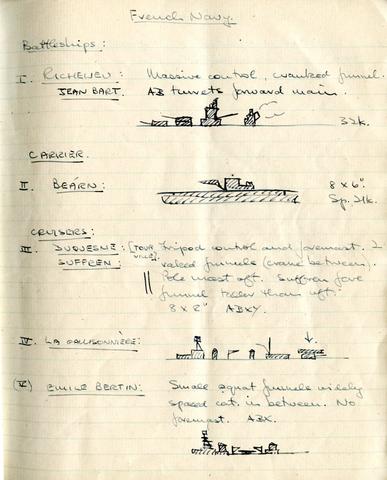 French Navy.
Battleships:
I. RICHELIEU: Massive control, cranked funnel.
JEAN BART. AB turrets forward main.
32k.
CARRIER.
II. BEÁRN: 8 x 6".
Sp. 21k.
CRUISERS:
III. DUQUESNE: [TOUR Tripod control and foremast. 2
SUFFREN: VILLE] raked funnels (crane between).
Pole mast aft. Suffren fore
funnel than aft.
8 x 8" ABXY.
IV. LA GALISONNIÈRE:
(V) EMILE BERTIN: Small squat funnels widely
spaced cat. in between. No
foremast. ABX.